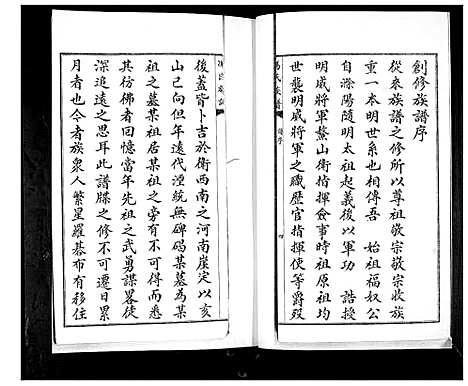 創修族譜序
從來族譜之修所以尊祖敬宗敬宗收族
重一本明世系也相傳吾 始祖福奴公
自滁陽隨明太祖起義後以軍功 誥授
明威將軍鰲山衛指揮僉事時祖原祖均
世襲明威將軍之職歷官指揮使等爵歿
後蓋皆卜吉於衛西南之河南崖定以亥
山已向但年遠代湮統無碑碣某墓為某
祖之墓某祖居某祖之旁有不得而悉
其彷彿者回憶當年先祖之武勇謀畧徒
深追遠之思耳此譜牒之修不可遷日累
月者也今者族衆人繁星羅碁布有移住
馮氏族譜